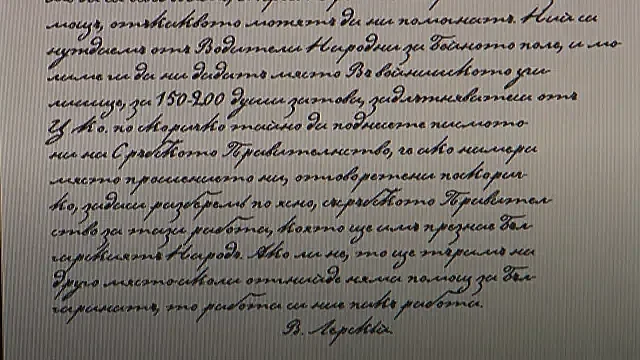 мощь, отъкъквото можятъ да ни помогнатъ. Ний си
нуждаемъ отъ Водители Народни за Бойното поле, и мо-
лиме ги да ни дадятъ място въ войнишкото учи-
лище, за 150-200 души затова, задлъжнявателни отъ
Ц. Ко. по скоричко тайно да поднесете писмото
ни на Сръбското Правителнство, че ако намери
място прошението ни, отговоретени поскорич-
ко, задаси разберемъ по ясно, съръбското Правител-
ство за тази работа, която ще имъ презнае Бъл-
гарскиятъ Народъ. Ако ли не, то ще търсимъ на
друго място иколи отнийде няма помощ за Бъл-
гаринатъ, то работа си ние пакъ работа.
В. Лерскій.